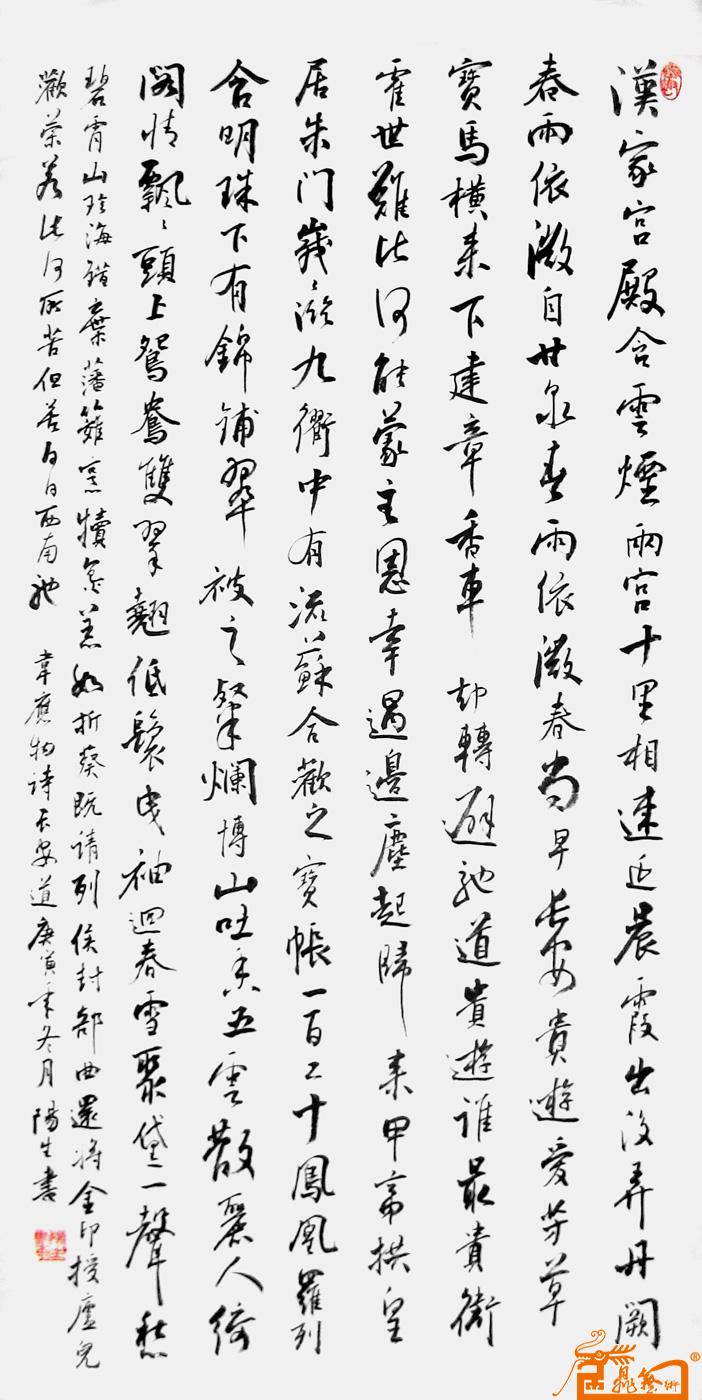 漢家宮殿含雲煙兩宮十里相連延晨霞出沒弄丹闕
春雨依微自甘泉春雨依微春尚早長安貴遊愛芳草
寶馬橫來下建章香車却轉避馳道貴遊誰最貴衛
霍世難比何能蒙主恩幸遇邊塵起歸來甲第拱皇
居朱门峩〻臨九衢中有流蘇合歡之寶帳一百二十鳳凰羅列
含明珠下有錦鋪翠被之粲爛博山吐香五雲散麗人綺
閣情飄〻頭上鴛鴦雙翠翹低鬟曳袖迴春雪聚黛一聲愁
碧霄山珍海錯棄藩籬烹犢炰羔如折葵既請列侯封部曲還將金印授廬兒
歡榮若此何所苦但苦白日西南馳 韋應物詩長安道 庚寅年冬月 陽生書